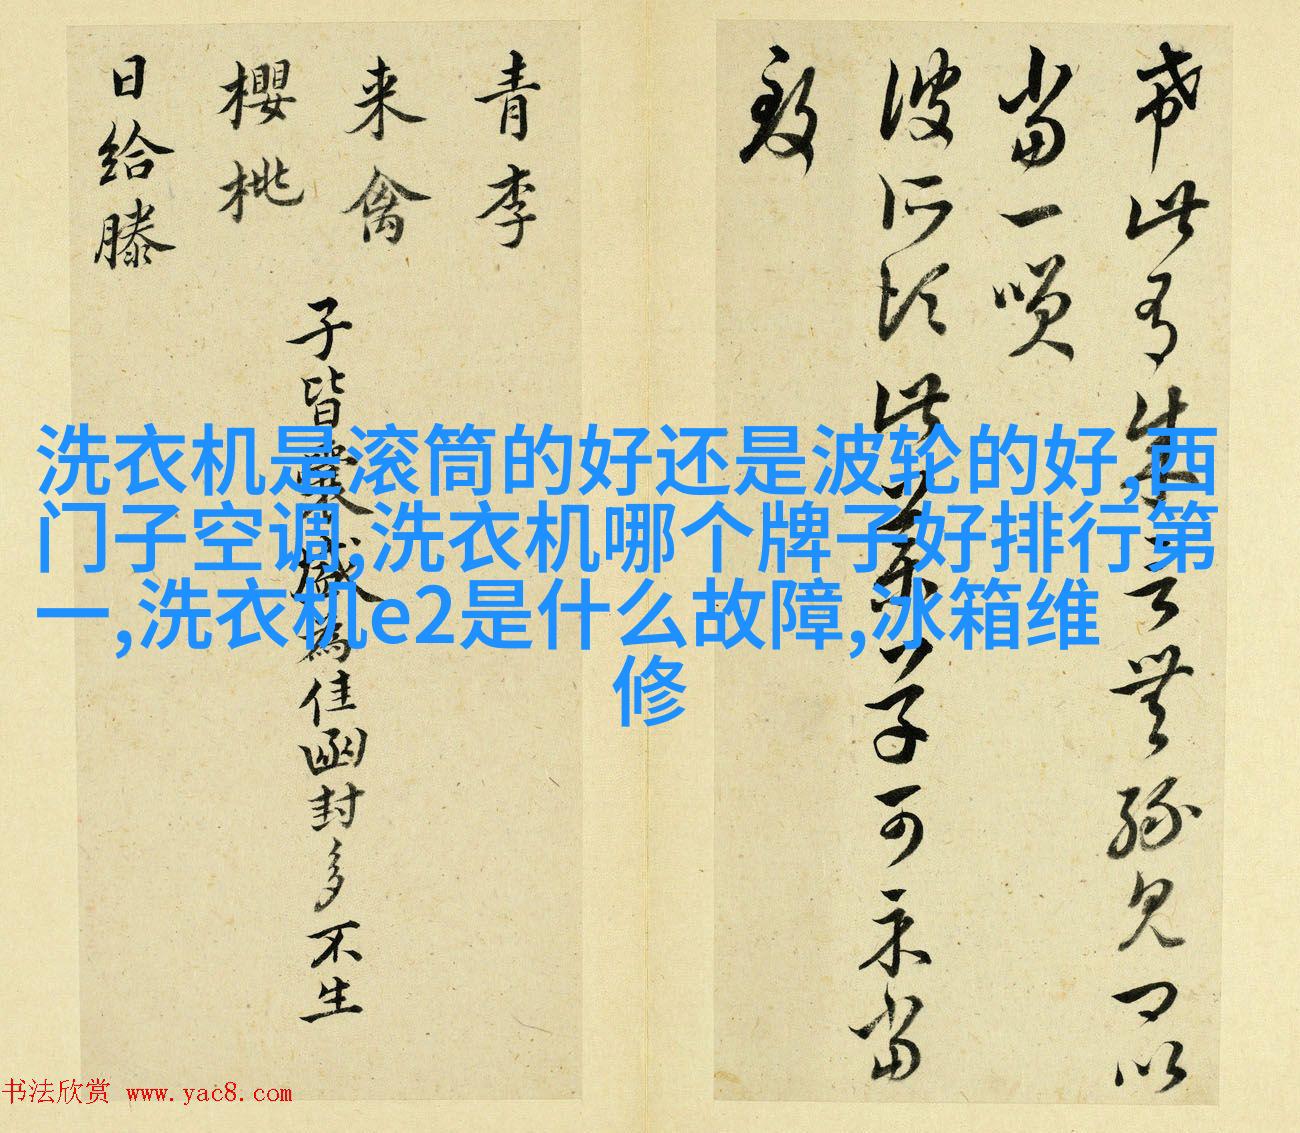 無緣見可以
當一
彼所須此藥草可示當
致
青李
来禽
櫻桃
日给滕
子皆囊盛為佳函封多不生
洗衣机是滚筒的好还是波轮的好,西
门子空调,洗衣机哪个牌子好排行第
一,洗衣机e2是什么故障,冰箱维
修
书法欣赏 www.yac8.com